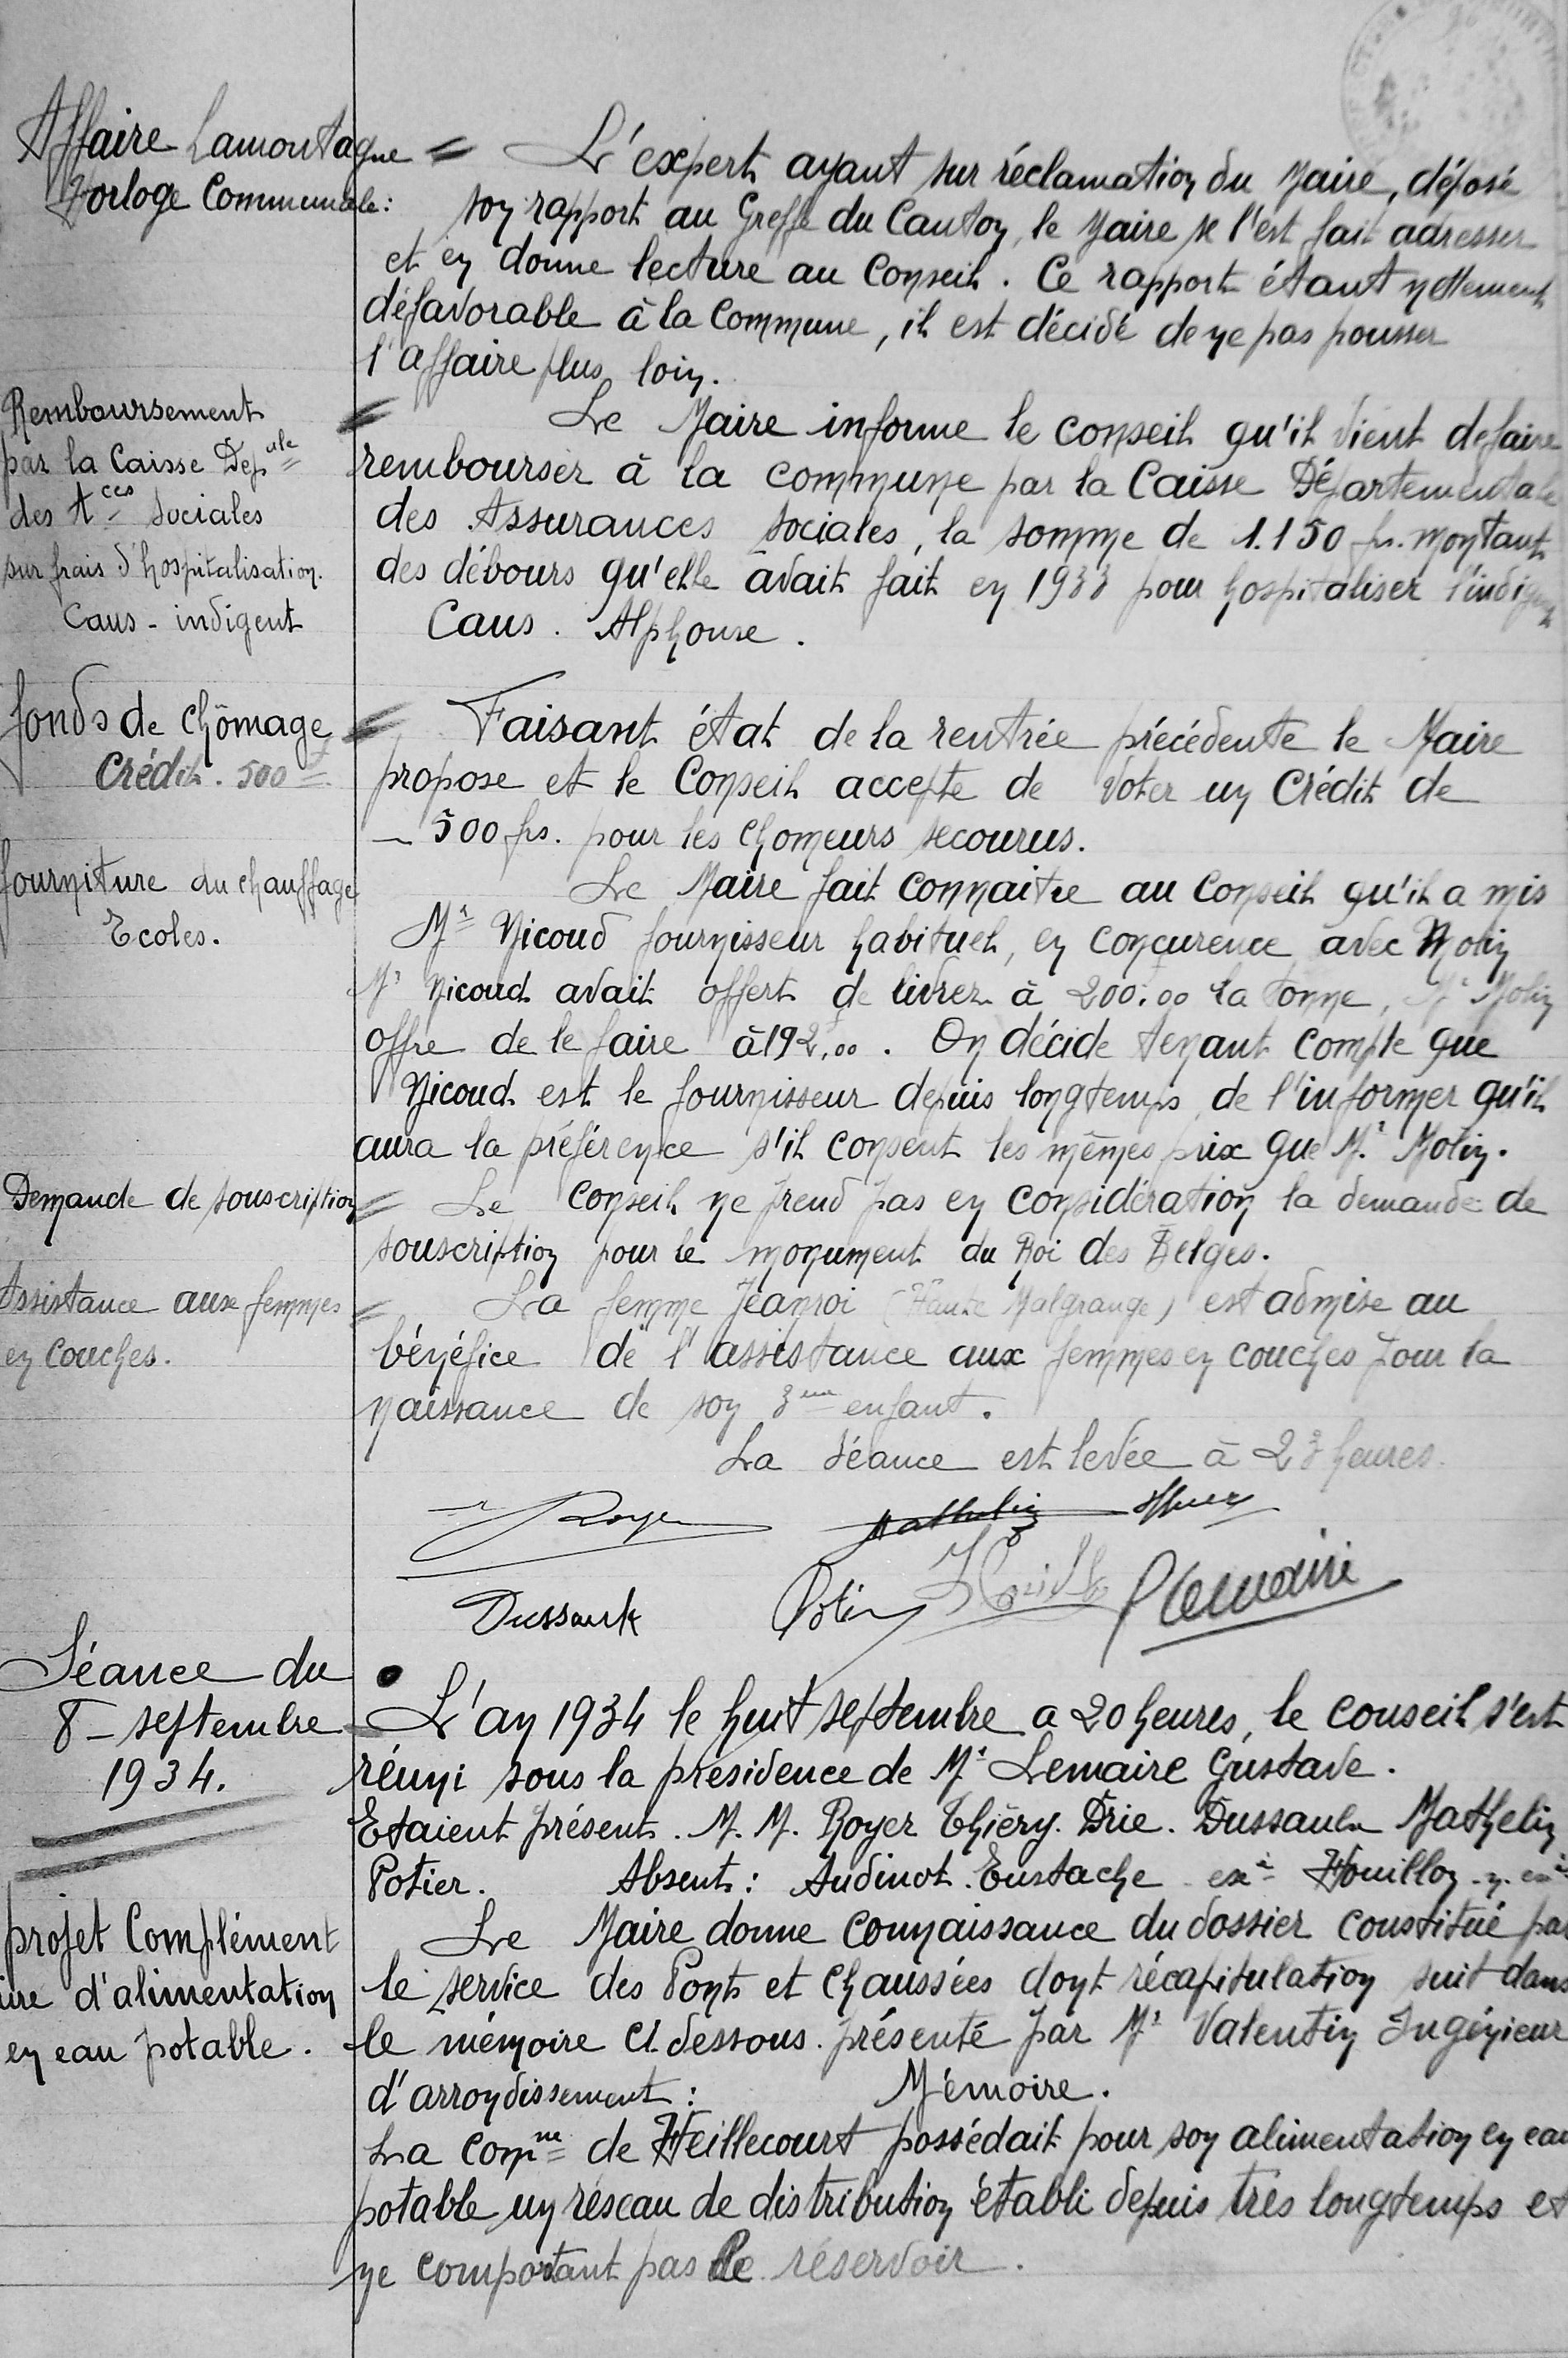 Affaire Lamontagne
Horloge Communale:
L'expert ayant sur réclamation du Maire, déposé
son rapport au Greffe du Canton, le Maire se l'est fait adresser
et en donne lecture au Conseil. Ce rapport étant nettement
défavorable à la Commune, il est décidé de ne pas pousser
l'affaire plus loin.
Remboursement
par la Caisse Dep ale
des Aces Sociales
sur frais d'hospitalisation.
Caus - indigent
Le Maire informe le conseil qu'il vient de faire
rembourser à la commune par la Caisse Départementale
des Assurances sociales, la somme de 1.150 frs. montant
des débours qu'elle avait fait en 1933 pour hospitaliser l'indigent
Caus. Alphonse.
fonds de chômage
Crédit. 500 f
Faisant état de la rentrée précédente le Maire
propose et le Conseil accepte de voter un Crédit de
500 frs. pour les chomeurs secourus.
fourniture du chauffage
Ecoles.
Le Maire fait connaitre au Conseil qu'il a mis
Mr Nicoud fournisseur habituel, en concurence avec Molin
Mr Nicoud avait offert de livrer à 200f.00 la tonne, Mr Molin
offre de le faire à 192f,00. On décide tenant compte que
Nicoud est le fournisseur depuis longtemps de l'informer qu'il
aura la préférence s'il consent les mêmes prix que Mr Molin.
Demande de souscription
Le Conseil ne prend pas en considération la demande de
souscription pour le monument du Roi des Belges.
Assistance aux femmes
en couches.
La femme Jeanroi (Haute Malgrange) est admise au
bénéfice de l'assistance aux femmes en couches pour la
naissance de son 3eme enfant.
La séance est levée à 23 heures.
Royer Mathelin
Dussault Potier Lemaire
Séance du
8 - septembre
1934.
L'an 1934 le huit septembre a 20 heures, le conseil s'est
réuni sous la présidence de Mr Lemaire Gustave.
Etaient présent. M.M. Royer Thiéry. Drie. Dussault Mathelin
Potier. Absent: Audinot. Eustache exé Houillon n. exé
projet Complément
ire d'alimentation
en eau potable.
Le Maire donne connaissance du dossier constitué par
le service des Ponts et Chaussées dont récapitulation suit dans
le mémoire ci. dessous. présenté par Mr Valentin Ingénieur
d'arrondissement: Mémoire.
La comne de Heillecourt possédait pour son alimentation en eau
potable un réseau de distribution établi depuis très longtemps et
ne comportant pas de réservoir.